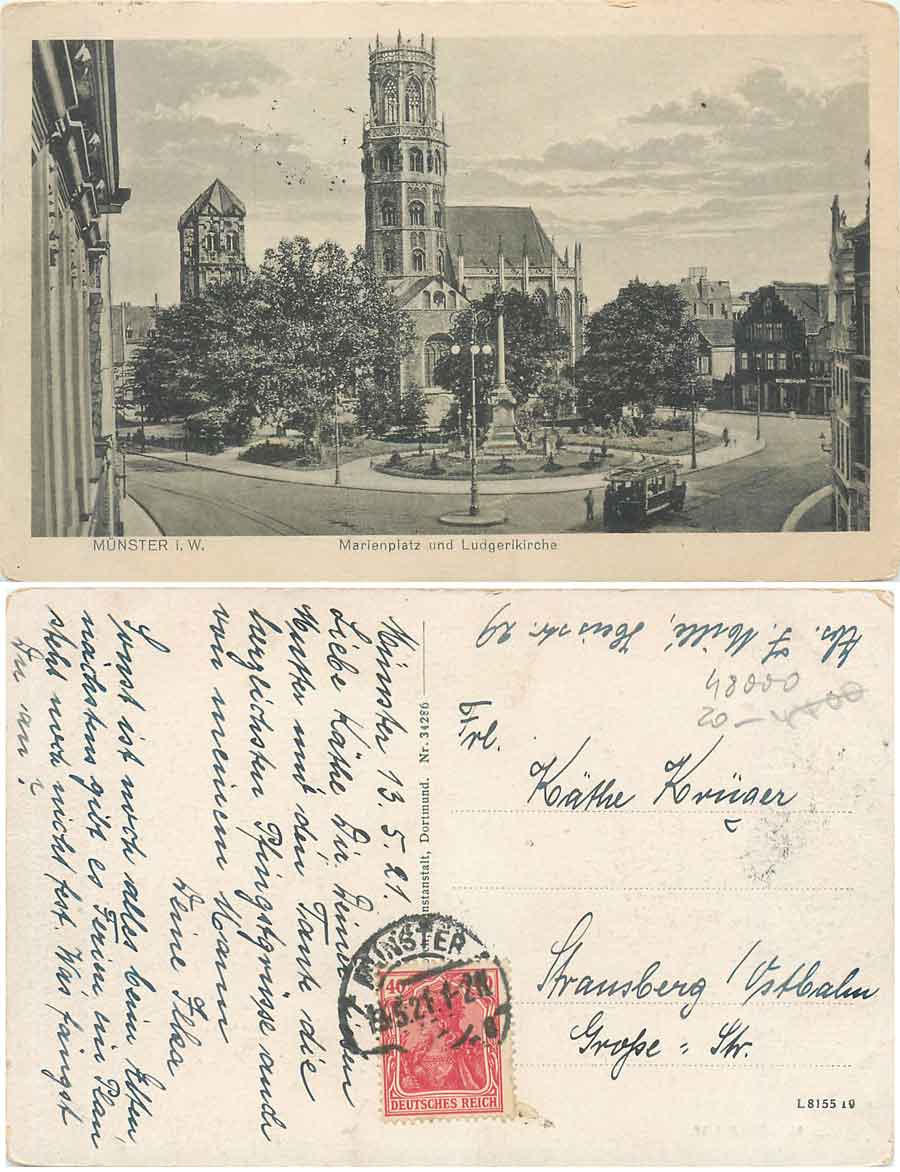 MÜNSTER i. W.
Marienplatz und Ludgerikirche
Münster 13. 5. 21.
Liebe Käthe Dir Deiner lieben
Mutter und den Tante die
herzlichsten Pfingstgrüsse auch
von meinem Mann
Deine Ilka
Sonst ist noch alles beim Alten,
nächstens gibt es Ferien, ein Plan
steht noch nicht fest. Was fängst
Du an?
nstanstalt, Dortmund. Nr. 34286
Abs. J.
29
48000
Frl.
Käthe Krüger
Strausberg / Ostbahn
Große-Str.
MÜNSTER
13.5.21.1-2N.
40
DEUTSCHES REICH
L 8155 19